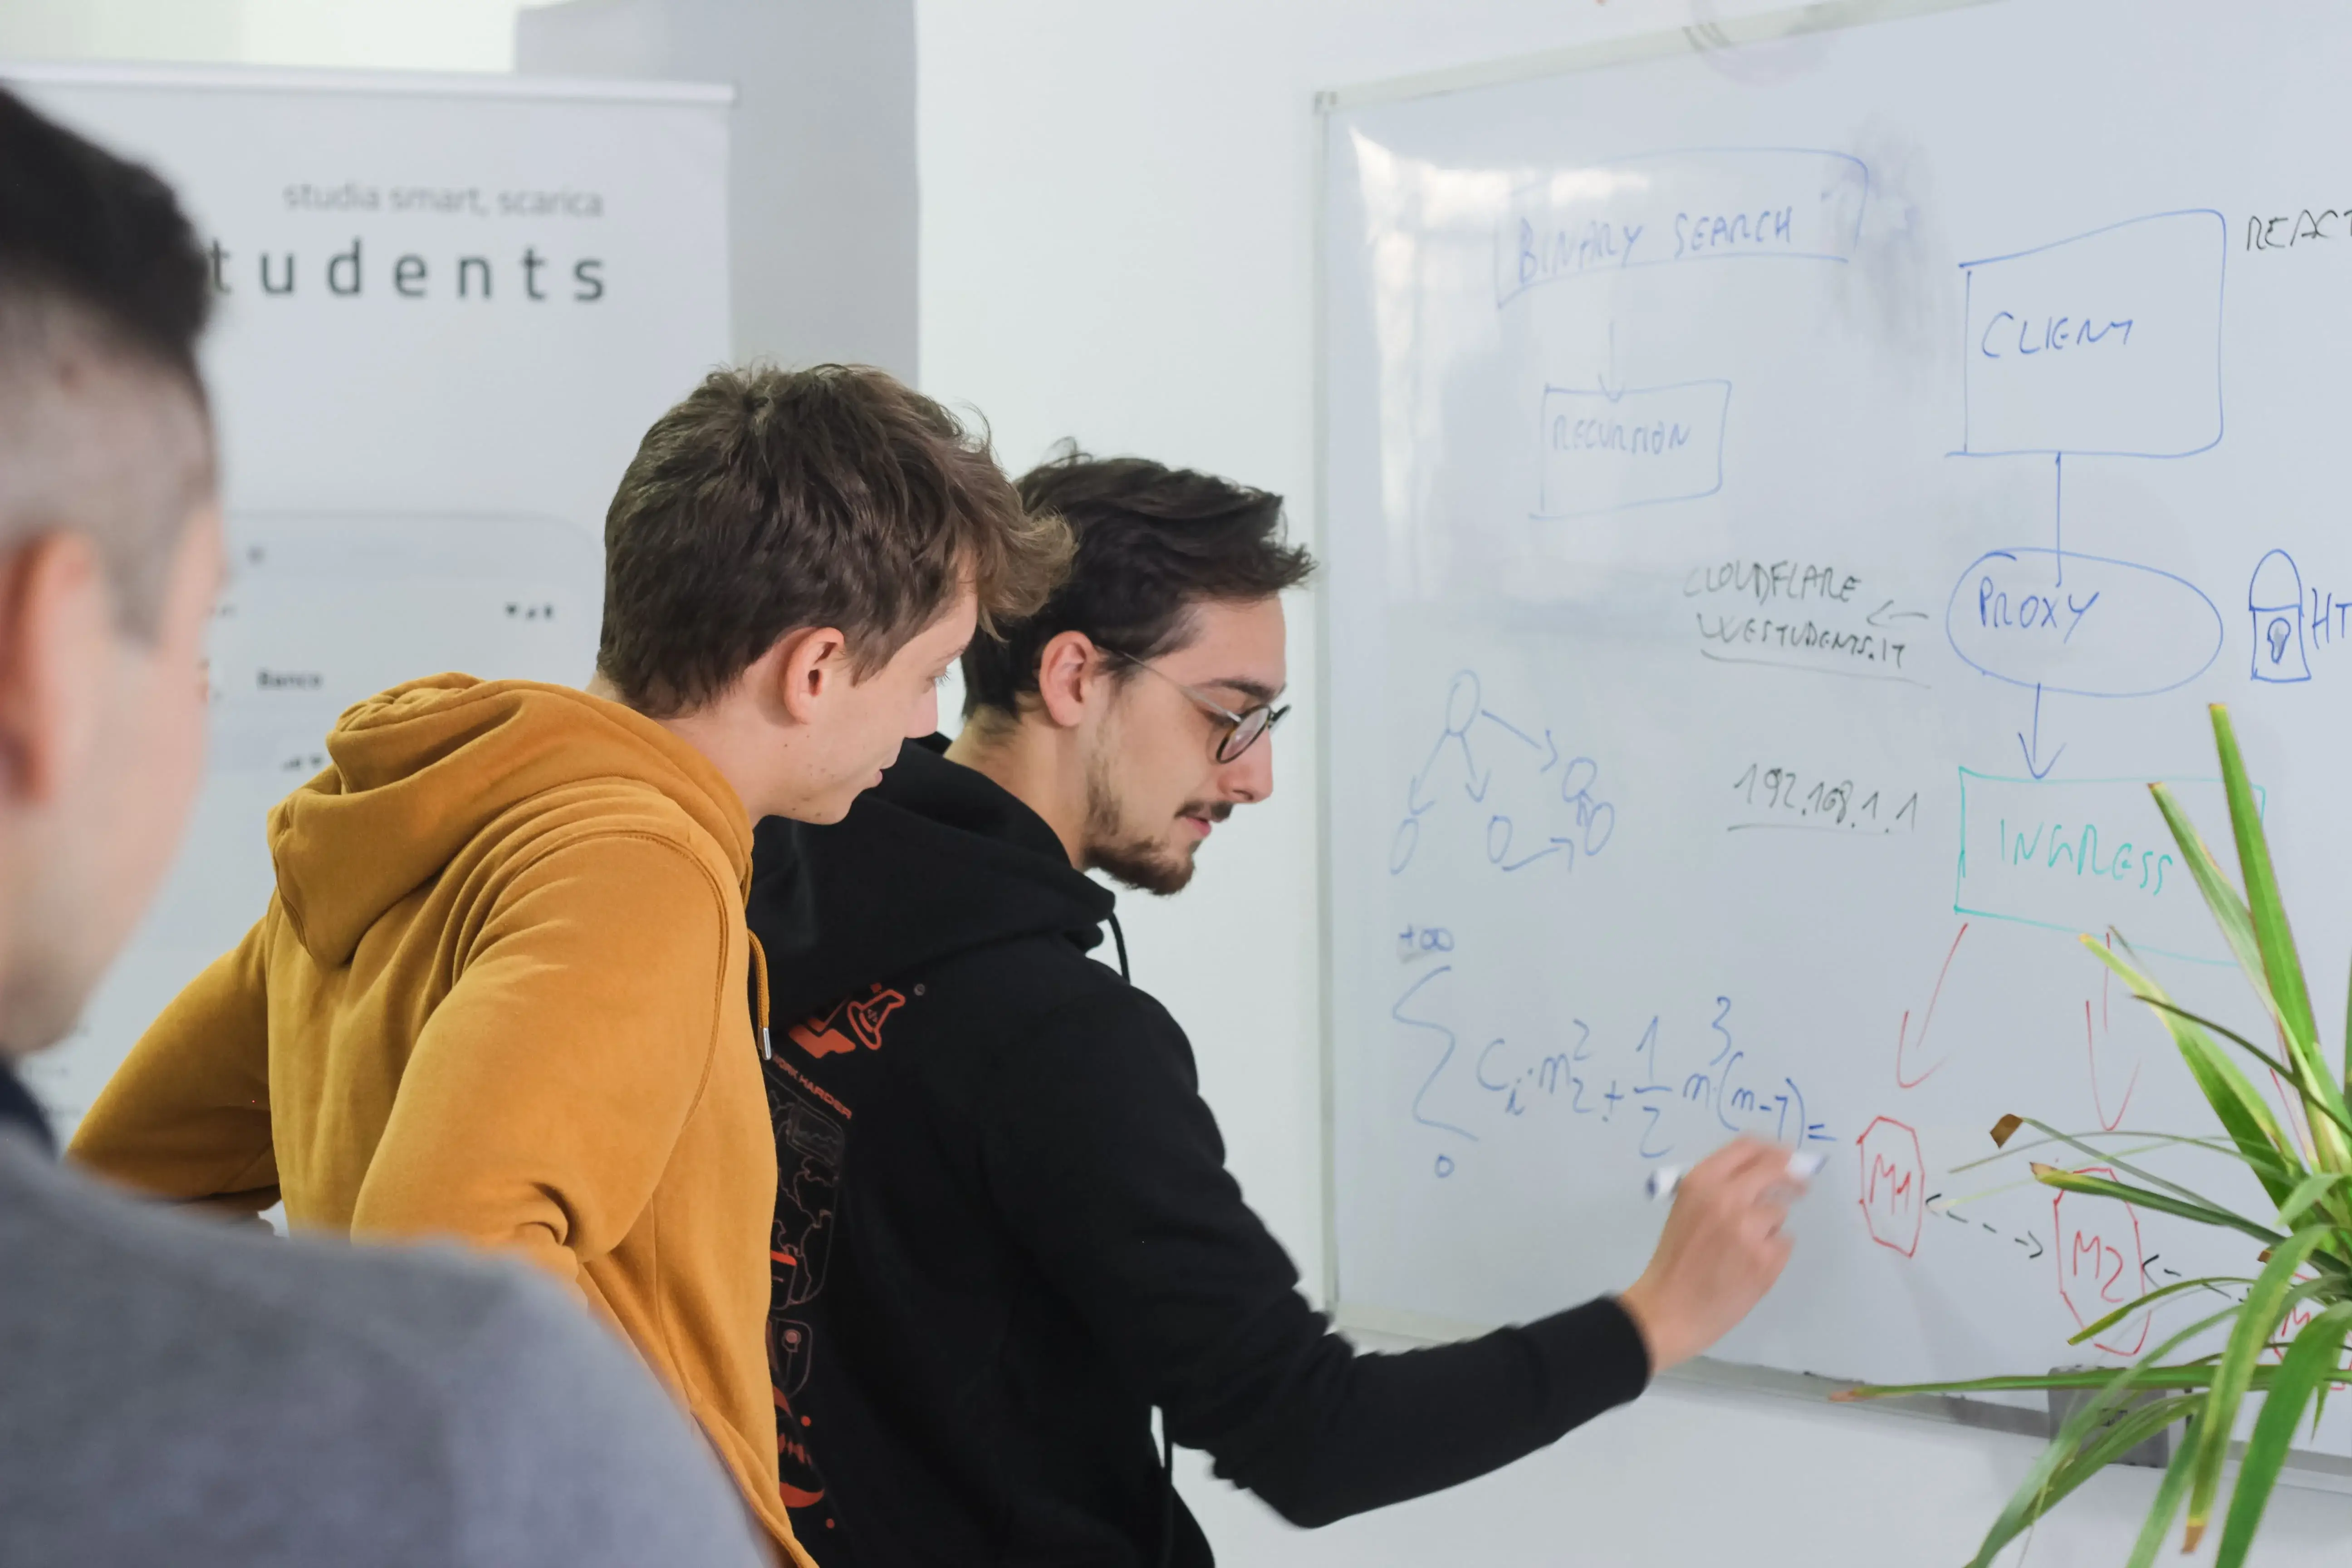 studia smart, scarica
tudents
Banco
BINARY SEARCH
RECURSION
REACT
CLIENT
CLOUDFLARE
WESTUDENTS.IT
PROXY
HT
192.168.1.1
INGRESS
+∞
Σ Ci·n₂² + 1/2 n³(n-7) =
0
M1
M2
WORK HARDER